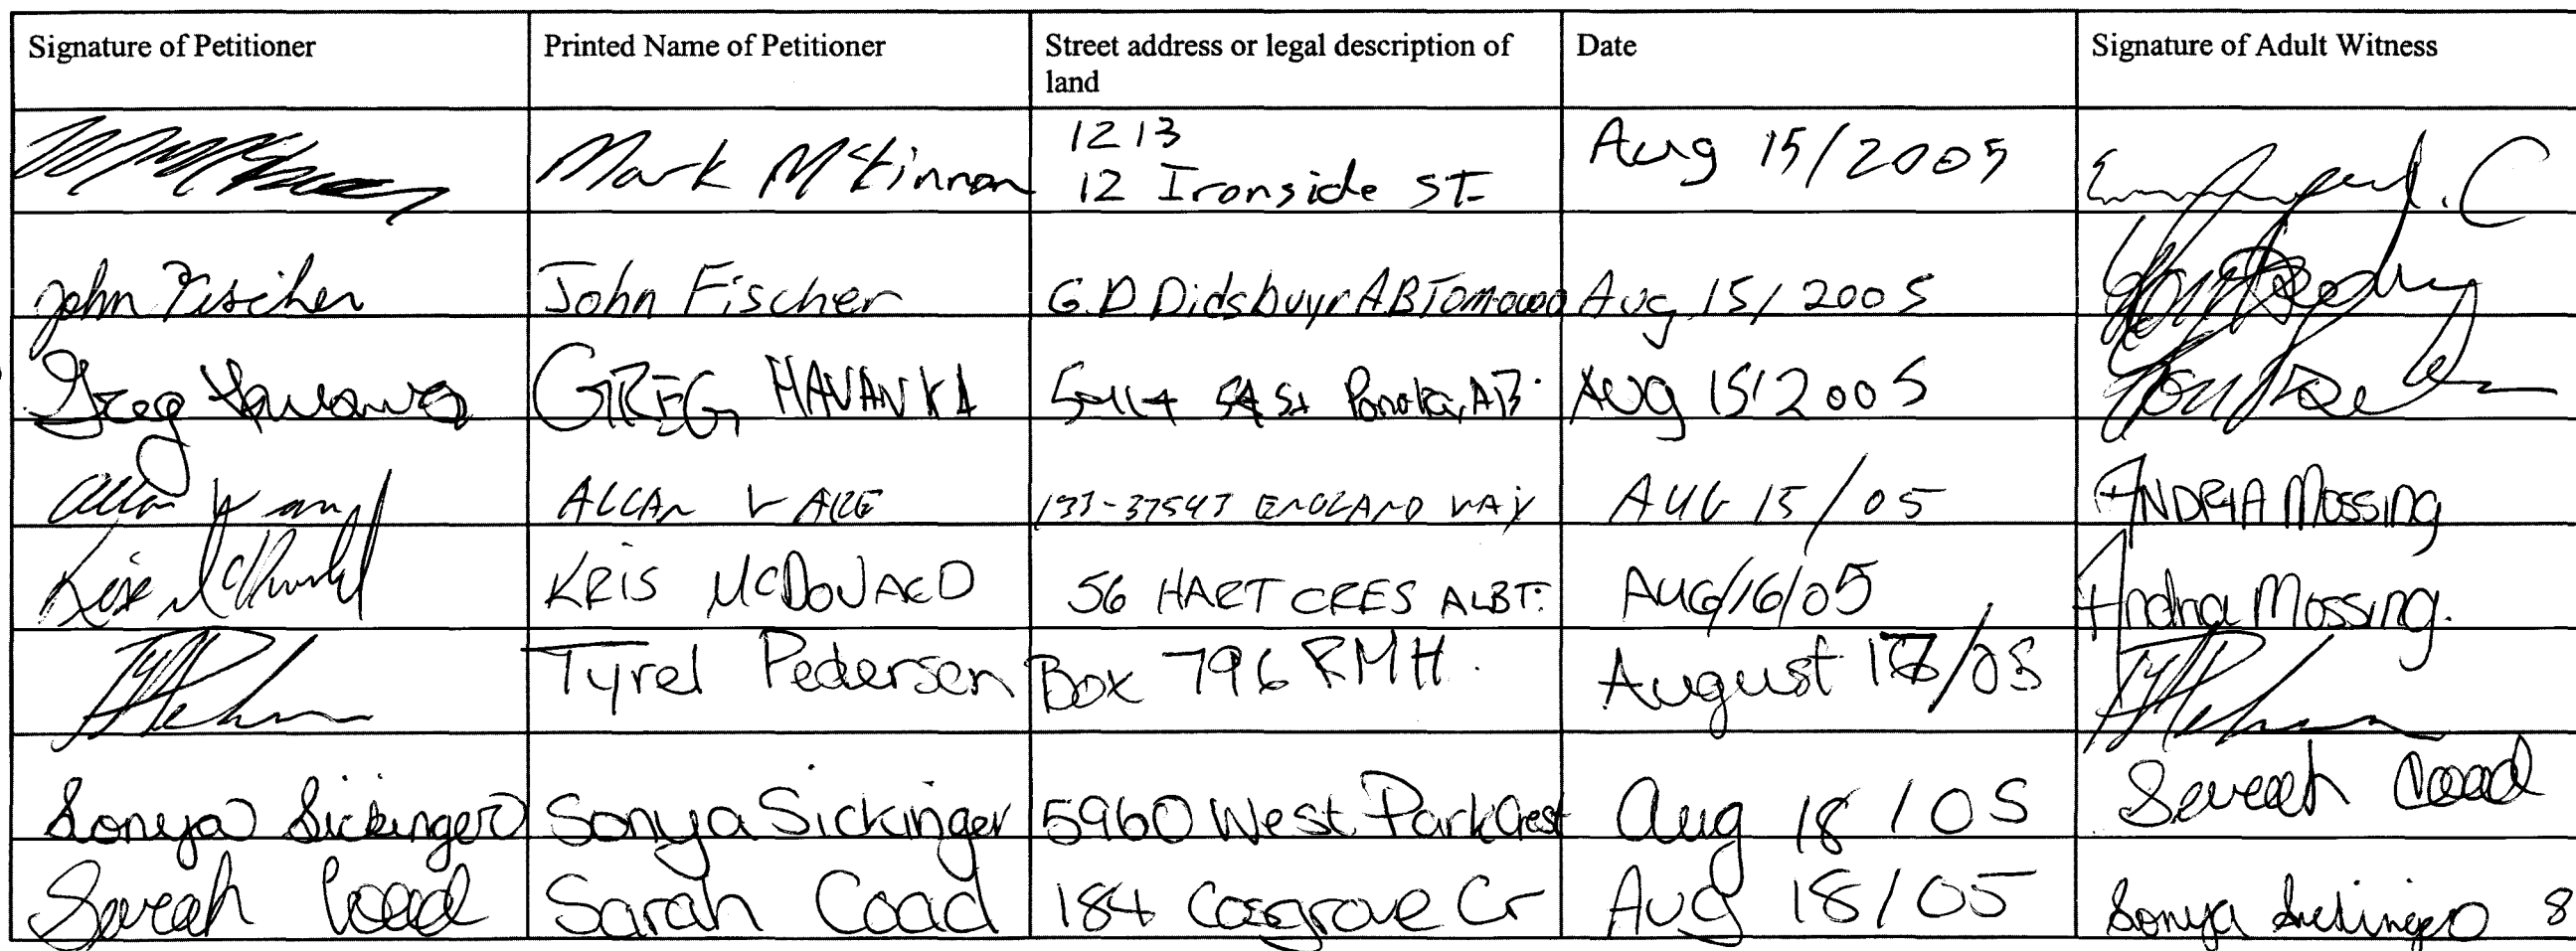 Signature of Petitioner Printed Name of Petitioner Street address or legal description of land Date Signature of Adult Witness
Mark McKinnon 1213 12 Ironside St. Aug 15/2005
John Fischer John Fischer G.D Didsbuyr AB Aug 15/2005
Greg GREG HAVANKA St Ponoka, AB. AUG 15/2005
Allan ALLAN WARE 133-37543 ENGLAND WAY AUG 15/05 ANDRIA MOSSING
Kris McDonald KRIS MCDONALD 56 HART CRES ALBT. AUG/16/05 Andria Mossing.
Tyrel Pedersen Box 796 RMH. August 17/05
Sonya Sickinger Sonya Sickinger 5960 West Park Crest Aug 18/05 Sarah Coad
Sarah Coad Sarah Coad 184 Cosgrove Cr Aug 18/05 Sonya Sickinger 8